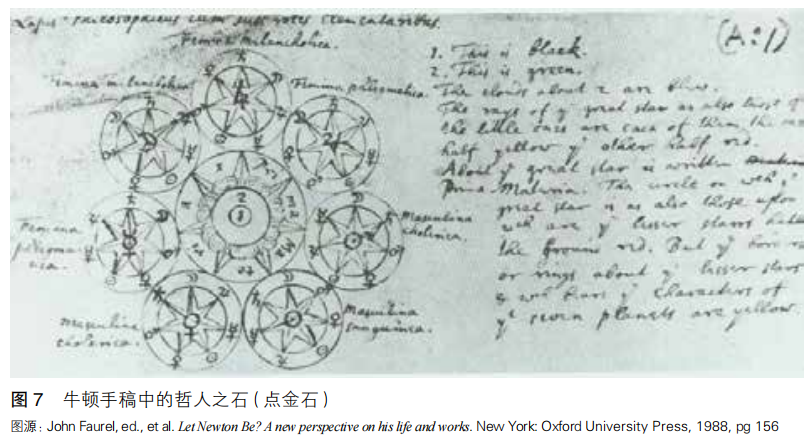 Lapis Philosophicus cum suis rotis elementaribus.
Femina melancholica.
Femina melancholica
Femina phlegmatica.
Femina
phlegma
tica.
Masculina
cholerica.
Masculina
cholerica.
Masculina
sanguinea.
1
2
Pri
ma
Ma
te
ri
a
(A:1)
1. This is black.
2. This is green.
The clouds about 2 are blew.
The rays of yͤ great star as also those of
the little ones are each of them, the
half yellow yͤ other half red.
About yͤ great star is written
Prima Materia. The circle on wch yͤ
great star is as also those upon
wch are yͤ lesser starrs hath
the ground red. But yͤ
or rings about yͤ lesser starrs
& wch bears yͤ characters of
yͤ seven planets are yellow.
图 7 牛顿手稿中的哲人之石(点金石)
图源: John Faurel, ed., et al. Let Newton Be? A new perspective on his life and works. New York: Oxford University Press, 1988, pg 156